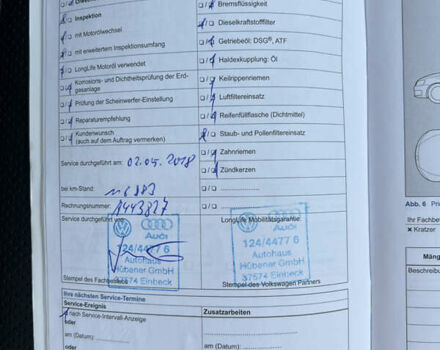 Bremsflüssigkeit
Inspektion
Dieselkraftstofffilter
mit Motorölwechsel
mit erweitertem Inspektionsumfang
Getriebeöl: DSG®, ATF
LongLife Motoröl verwendet
Haldexkupplung: Öl
Korrosions- und Dichtheitsprüfung der Erd-
gasanlage
Keilrippenriemen
Luftfiltereinsatz
Prüfung der Scheinwerfer-Einstellung
Reparaturempfehlung
Reifenfüllflasche (Dichtmittel)
Kundenwunsch
(auch auf dem Auftrag vermerken)
Staub- und Pollenfiltereinsatz
Service durchgeführt am: 02.05.2018
Zahnriemen
Zündkerzen
bei km-Stand: 116 883
Rechnungsnummer: 1443827
Service durchgeführt und
LongLife Mobilitätsgarantie
Audi
124/4477 6
Autohaus
Hübener GmbH
37574 Einbeck
Stempel des Fachbetriebs
Audi
124/4477 6
Autohaus
Hübener GmbH
37574 Einbeck
Stempel des Volkswagen Partners
Ihre nächsten Service-Termine
Service-Ereignis
Zusatzarbeiten
nach Service-Intervall-Anzeige
oder
am (Datum):
oder
am (Datum):
Abb. 6
Ihr Fa
× Kratzer
Mäng
Beschreibu